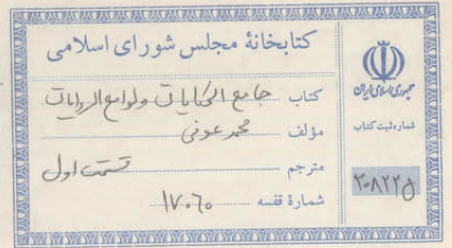 کتابخانهٔ مجلس شورای اسلامی
کتاب جامع الحکایات ولوامع الروایات
مؤلف محمد عوفی
مترجم قسمت اول
شمارهٔ قفسه ۱۷۰۶۰
جمهوری اسلامی ایران
شماره ثبت کتاب
۲۰۸۲۲۵